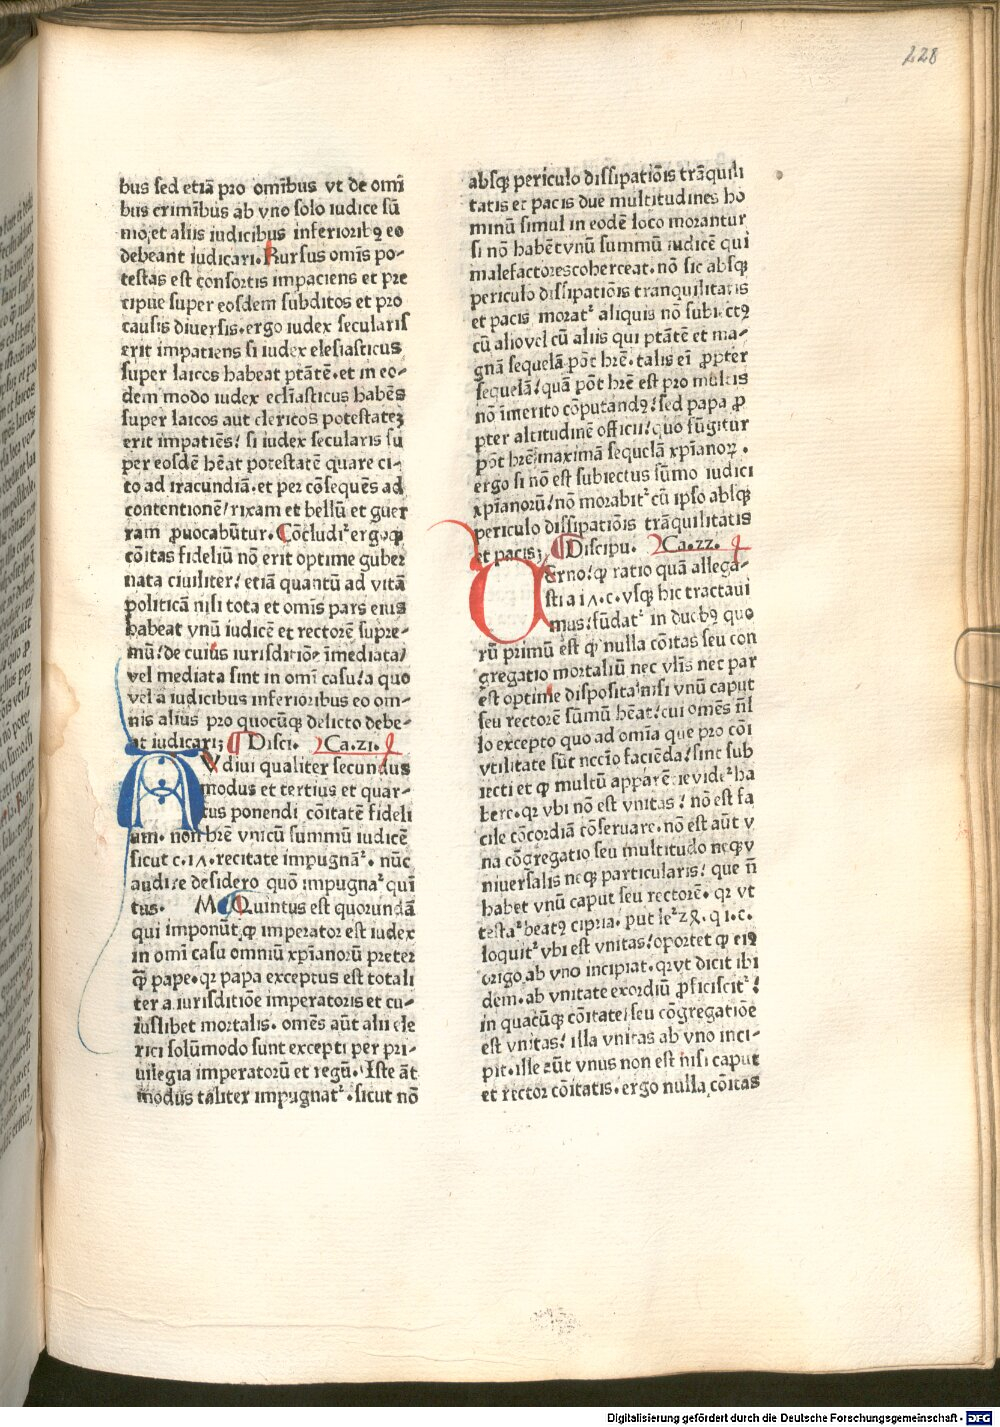 228
bus sed etiā pro omībus vt de omī
bus crimībus ab vno solo iudice sū
mo;et aliis iudicibus inferioribꝰ eo
debeant iudicari. Rursus omīs po-
testas est consortis impaciens et pre
cipue super eosdem subditos et pro
causis diuersis.ergo iudex secularis
erit impatiens si iudex elesiasticus
super laicos habeat ptātē.et in eo-
dem modo iudex ecliasticus habēs
super laicos aut clericos potestatez
erit impatiēs/ si iudex secularis su
per eosdē hēat potestatē quare ci-
to ad iracundiā.et per cōsequēs ad
contentionē/rixam et bellū et guer
ram ꝓuocabūtur. Cōcludiť ergo ꝙ
cōitas fideliū nō erit optime guber
nata ciuiliter/ etiā quantū ad vitā
politicā nisi tota et omīs pars eius
habeat vnū iudicē et rectorē supre-
mū/de cuius iurisditiōe īmediata/
vel mediata sint in omī casu/a quo
vel a iudicibus inferioribus eo om-
nis alius pro quocūqꝫ delicto debe-
at iudicariꝫ ¶ Disci. Ca.zi.
AVdiui qualiter secundus
modus et tertius et quar-
tus ponendi cōitatē fideli
um. non hrē vnicū summū iudicē
sicut c.iʌ.recitate impugnāť. nūc
audire desidero quō impugnať quī
tus. M. Quintus est quorundā
qui imponūt ꝙ imperator est iudex
in omī casu omniū xpīanorū preter
ꝙ̄ pape.qꝛ papa exceptus est totali
ter a iurisditiōe imperatoris et cu-
iuslibet mortalis. omēs aūt alii cle
rici solūmodo sunt excepti per pri-
uilegia imperatorū et regū. Iste āt
modus taliter impugnať. sicut nō
absqꝫ periculo dissipatiōis trāquili
tatis et pacis due multitudines ho
minū simul in eodē loco morantur
si nō habēt vnū summū iudicē qui
malefactores coherceat.nō sic absqꝫ
periculo dissipatiōis tranquilitatis
et pacis morať aliquis nō subiectꝰ
cū alio vel cū aliis qui ptātē et ma-
gnā sequelā pōt hrē.talis eī ꝓpter
sequelā/quā pōt hrē est pro multis
nō īmerito cōputandꝰ/sed papa ꝓ
pter altitudinē officii/quo fūgitur
pōt hrē maximā sequelā xpīanoꝝ.
ergo si nō est subiectus sūmo iudici
xpīanorū/nō morabiť cū ipso absqꝫ
periculo dissipatiōis trāquilitatis
et pacisꝫ ¶ Discipu. Ca.zz.
erno/ꝙ ratio quā allega-
sti a iʌ.c.vsqꝫ hic tractaui
mus/fūdať in duobꝰ quo
rū primū est ꝙ nulla cōitas seu con
gregatio mortaliū nec vlīs nec par
est optime disposita nisi vnū caput
seu rectorē sūmū hēat/cui omēs nīl
lo excepto quo ad omīa que pro cōi
vtilitate sūt nccīo faciēda/sint sub
iecti et ꝙ multū apparēt euideť ha
bere.qꝛ vbi nō est vnitas/ nō est fa
cile cōcordiā cōseruare.nō est aūt v
na cōgregatio seu multitudo neqꝫ v
niuersalis neqꝫ particularis/ que ñ
habet vnū caput seu rectorē. qꝛ vt
testať beatꝰ cipria. put leť zꝝ.q i.c.
loquiť vbi est vnitas/oportet ꝙ eiꝰ
origo ab vno incipiat.qꝛ vt dicit ibi
dem.ab vnitate exordiū ꝓficisciť/
in quacūqꝫ cōitate/seu cōgregatiōe
est vnitas/ illa vnitas ab vno inci-
pit.ille aūt vnus non est nisi caput
et rector cōitatis.ergo nulla cōitas
Digitalisierung gefördert durch die Deutsche Forschungsgemeinschaft - DFG